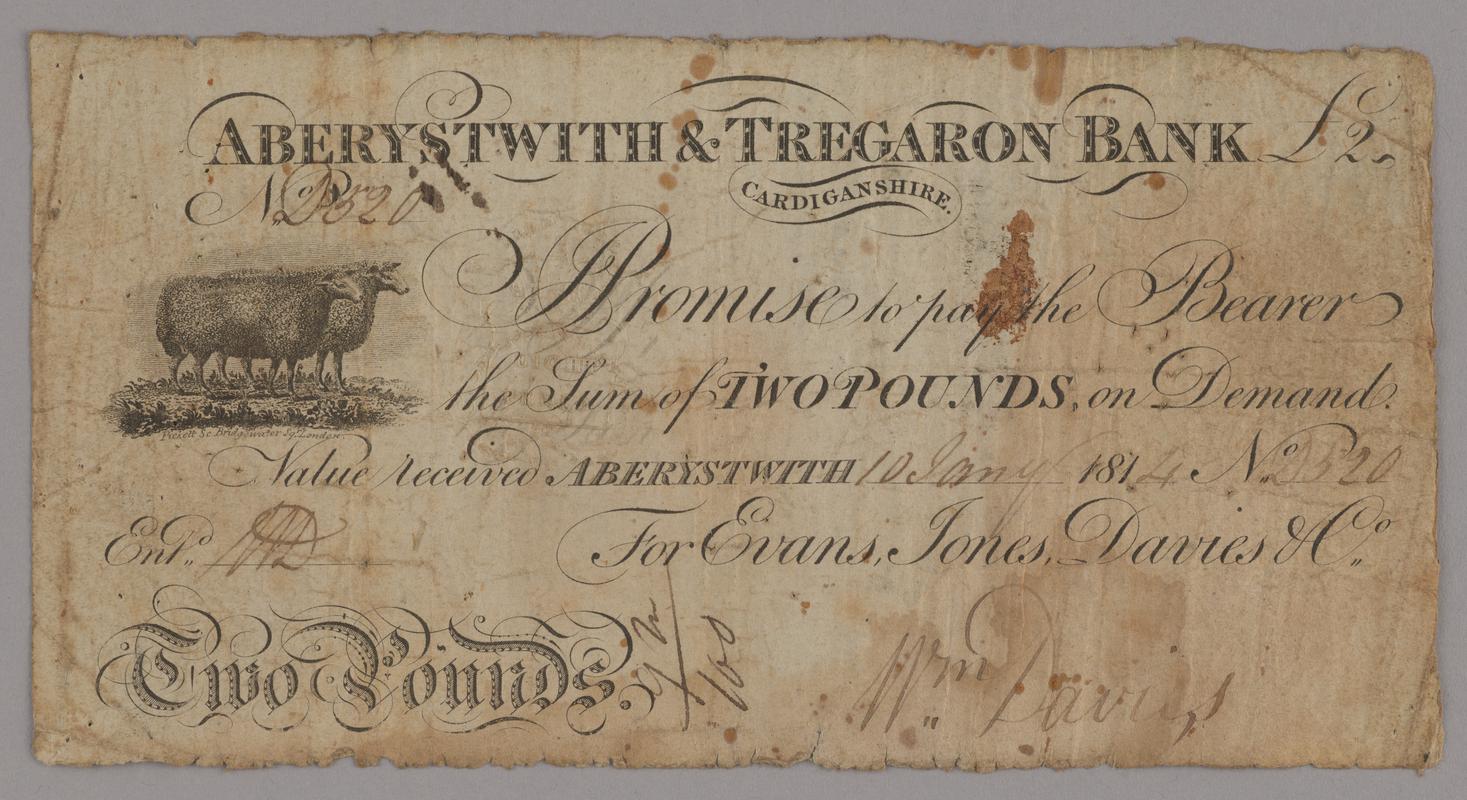 ABERYSTWITH & TREGARON BANK £2
CARDIGANSHIRE.
No. D520
I Promise to pay the Bearer
the Sum of TWO POUNDS, on Demand.
Pickett Sc. Bridgewater Sq. London.
Value received ABERYSTWITH 10 Jany 1814 No. D520
Entd.
For Evans, Jones, Davies & Co.
Two Pounds.
Wm Davies